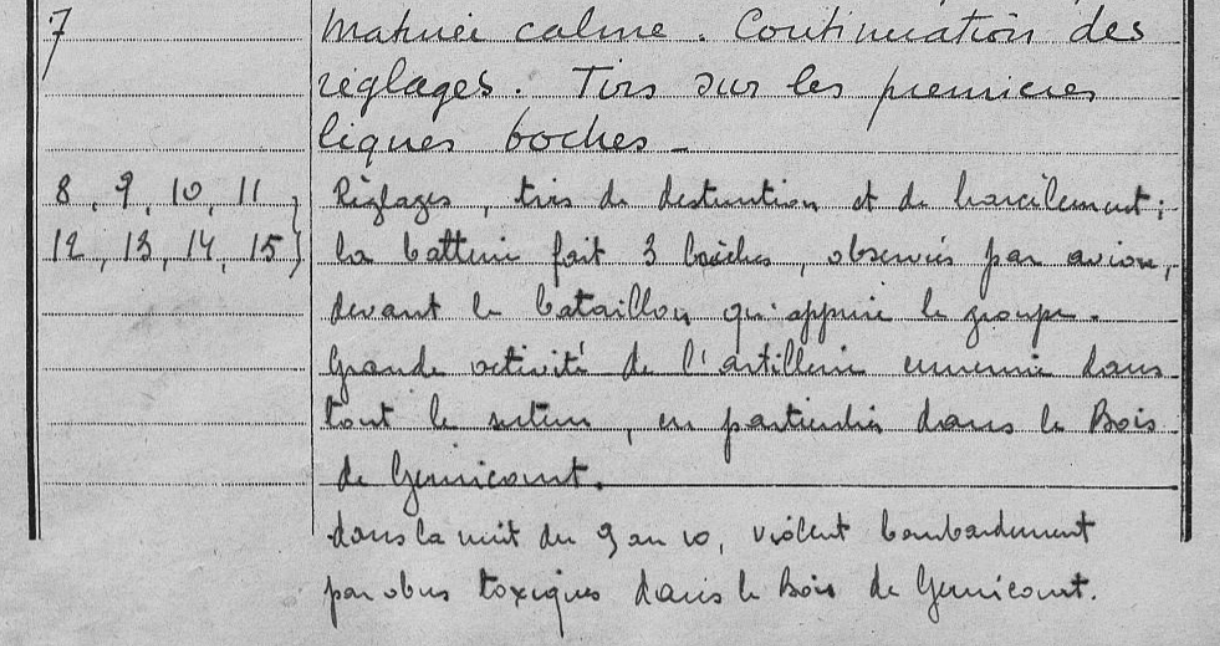 7 Matinée calme. Continuation des
réglages. Tirs sur les premieres
lignes boches -
8, 9, 10, 11, Réglages, tirs de destruction et de harcèlement;
12, 13, 14, 15) la batterie fait 3 brèches, observées par avion,
devant le bataillon qu'appuie le groupe.
Grande activité de l'artillerie ennemie dans
tout le secteur, en particulier dans le Bois
de Gernicourt.
dans la nuit du 9 au 10, violent bombardement
par obus toxiques dans le Bois de Gernicourt.